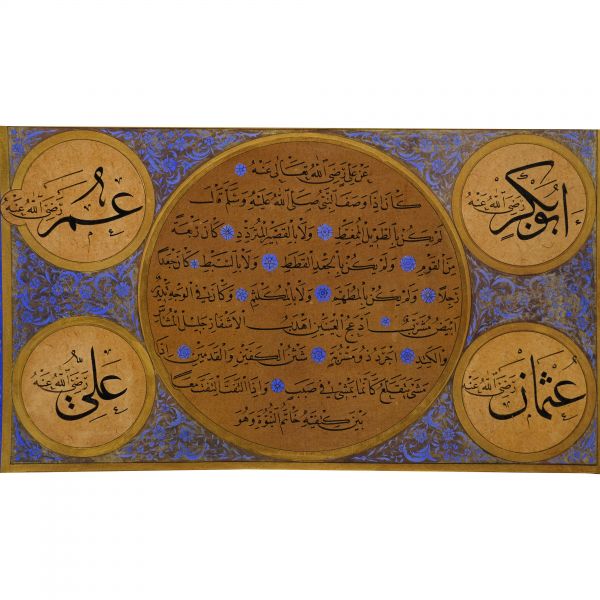 ابو بكر رضى الله عنه
عمر رضى الله عنه
عن علي رضى الله تعالى عنه
كان اذا وصف النبي صلى الله عليه وسلم قال
لم يكن بالطويل الممغط ولا بالقصير المتردد كان ربعة
من القوم ولم يكن بالجعد القطط ولا بالسبط كان جعدا
رجلا ولم يكن بالمطهم ولا بالمكلثم وكان في الوجه تدوير
ابيض مشرب ادعج العينين اهدب الاشفار جليل المشاش
والكتد اجرد ذو مسربة شثن الكفين والقدمين اذا
مشى تقلع كانما يمشي في صبب واذا التفت التفت معا
بين كتفيه خاتم النبوة وهو
عثمان رضى الله عنه
علي رضى الله عنه